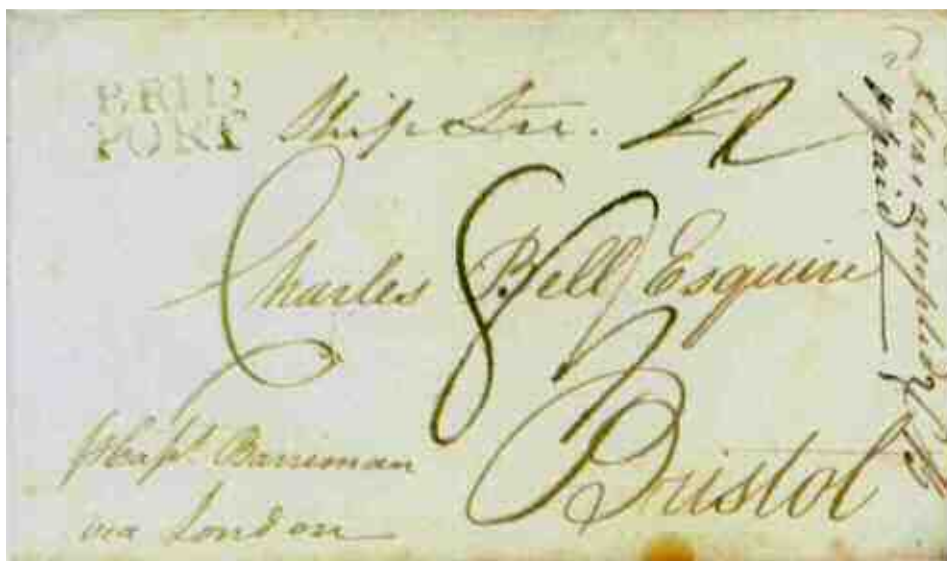 BRID
PORT
Ship Lre.
Charles Bell Esquire
Bristol
Capt. Barriman
via London
paid